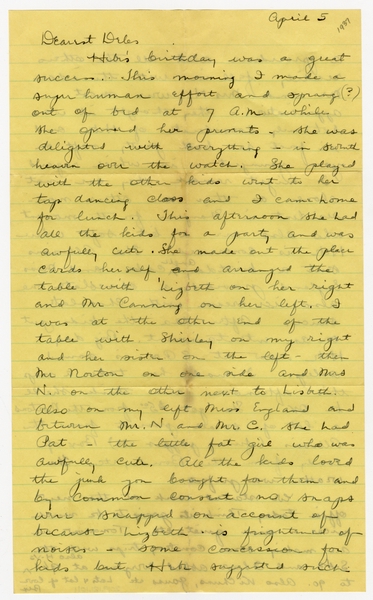 April 5
Dearest Debs.
Hebs birthday was a great
success. This morning I made a
super human effort and sprang (?)
out of bed at 7 A.M while
she opened her presents - she was
delighted with everything - in seventh
heaven over the watch. She played
with the other kids went to her
tap dancing class and I came home
for lunch. This afternoon she had
all the kids for a party and was
awfully cute. She made out the place
cards herself, and arranged the
table with Lizbeth on her right
and Mr Canning on her left. I
was at the other end of the
table with Shirley on my right
and her sister on the left - then
Mr Norton on one side and Mrs
N. on the other next to Lizbeth.
Also on my left Miss England and
between Mr. N and Mr C. she had
Pat - the little fat girl who was
awfully cute. All the kids loved
the junk you bought for them and
by common consent no snaps
were snapped on account of
because Lizbeth is frightened of
noises - some concession for
kids but Hebs suggested since